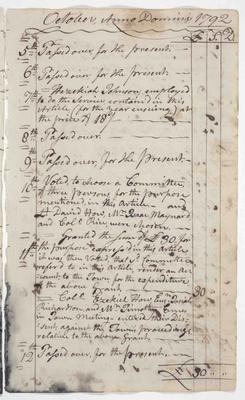 October, Anno Domini 1792
£ S D
5th Passed over for the present. —
6th Passed over for the present. —
7th Hezekiah Johnson, employed
to do the Service contain'd in this
Article (for the year ensuing) at
the price of 18s
8th Passed over. —
9th Passed over, for the present. —
10th Voted, to choose a Committee
of three persons for the purpose
mentioned, in this Article. — and
Lt David How, Mr Isaac Maynard
and Colo Rice, were chosen. —
11th Granted the Sum of £30, for
the purpose expressed in this Article
it was then Voted, that the Committee
refer'd to in this Article, render an Ac-
count to the Town for the expenditure
of the above Grant. — 30
Colo Ezekiel How, Josiah
Richardson, and Mr Timothy
in Town Meeting entered their Dis-
sent against the Town's proceedings
relative to the above grant.
12th Passed over, for the present. —
30